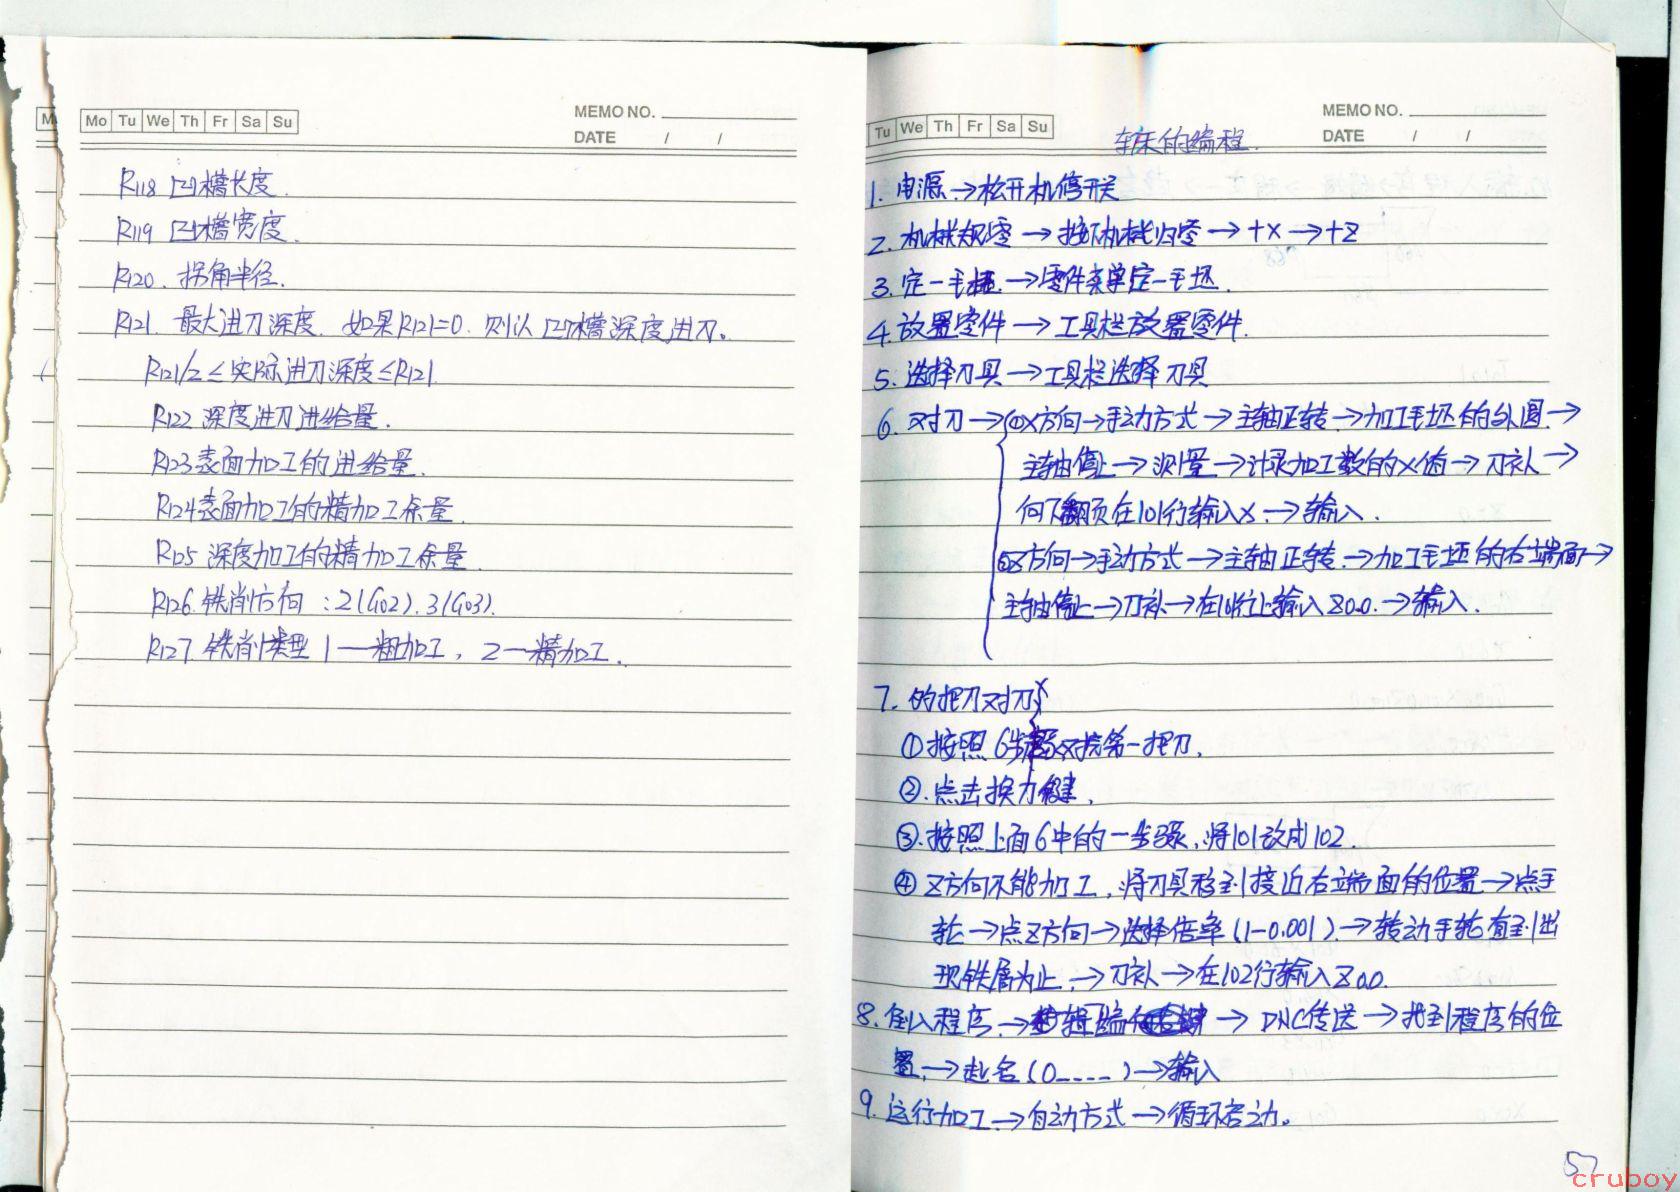 Mo Tu We Th Fr Sa Su
MEMO NO.
DATE / /
R118 凹槽长度.
R119 凹槽宽度.
R120. 拐角半径.
R121. 最大进刀深度. 如果R121=0. 则以凹槽深度进刀。
R121/2≤实际进刀深度≤R121.
R122 深度进刀进给量.
R123 表面加工的进给量.
R124 表面加工的精加工余量.
R125 深度加工的精加工余量.
R126. 铣削方向:2(G02).3(G03).
R127. 铣削类型 1—粗加工, 2—精加工.
Tu We Th Fr Sa Su
MEMO NO.
DATE / /
车床的编程.
1. 电源.→松开机停开关
2. 机械归零→按下机械归零→+X→+Z
3. 定一毛坯.→零件菜单定一毛坯.
4. 放置零件→工具栏放置零件.
5. 选择刀具→工具栏选择刀具
6. 对刀→①X方向→手动方式→主轴正转→加工毛坯的外圆.→
主轴停止→测量→记录加工数的X值→刀补→
向下翻页在101行输入X.→输入.
②Z方向→手动方式→主轴正转.→加工毛坯的右端面→
主轴停止→刀补→在101行上输入Z0.0.→输入.
7. 的把刀对刀
①按照6步骤对完第一把刀.
②.点击换刀键.
③.按照上面6中的一步骤,将101改成102.
④Z方向不能加工,将刀具移到接近右端面的位置→点手
轮→点Z方向→选择倍率(1-0.001).→转动手轮直到出
现铁屑为止.→刀补→在102行输入Z0.0.
8. 倒入程序.→ → DNC传送→找到程序的位
置.→起名(O____)→输入
9. 运行加工.→自动方式→循环启动。
57
cruboy